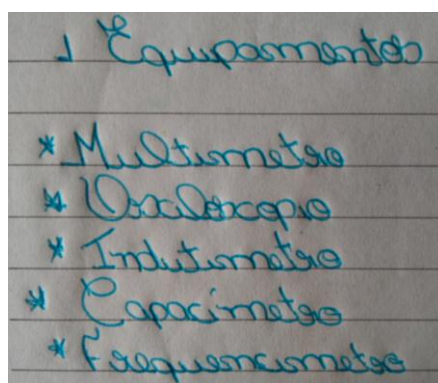 1 Equipamentos
* Multimetro
* Osciloscopio
* Indutimetro
* Capacimetro
* Frequencimetro